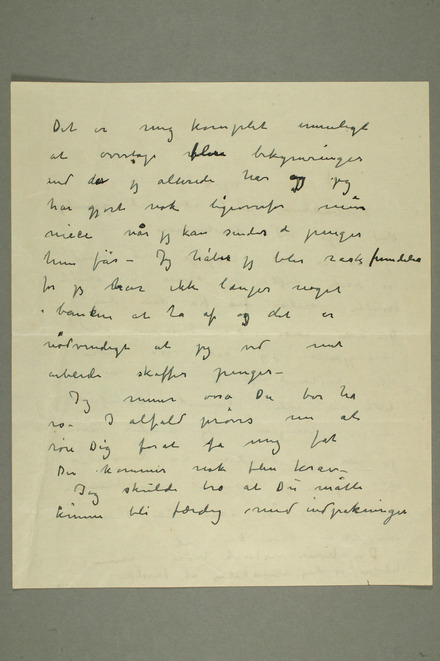 Det er mig komplet umuligt
at overtage flere bekymringer
end de jeg allerede har og jeg
har gjort nok ligeoverfor min
niece når jeg kan sender de penger
hun får – Jeg håber jeg blir rask fremdeles
for jeg har ikke længer noget
i banken at ta af og det er
nödvendigt at jeg ved mit
arbeide skaffer penger –
Jeg mener også Du bør ha
ro – I alfald prøves nu at
røre Dig for at få mig fat
Der kommer nok flere krav –
Jeg skulde tro at Du måtte
kunne bli færdig med indpakninger